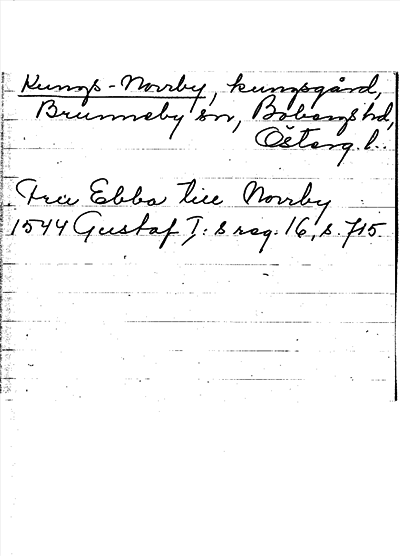 Kungs-Norrby, kungsgård,
Brunneby sn, Bobergs hd,
Österg. l.
Fru Ebba till Norrby
1544 Gustaf I:s reg. 16, s. 715.